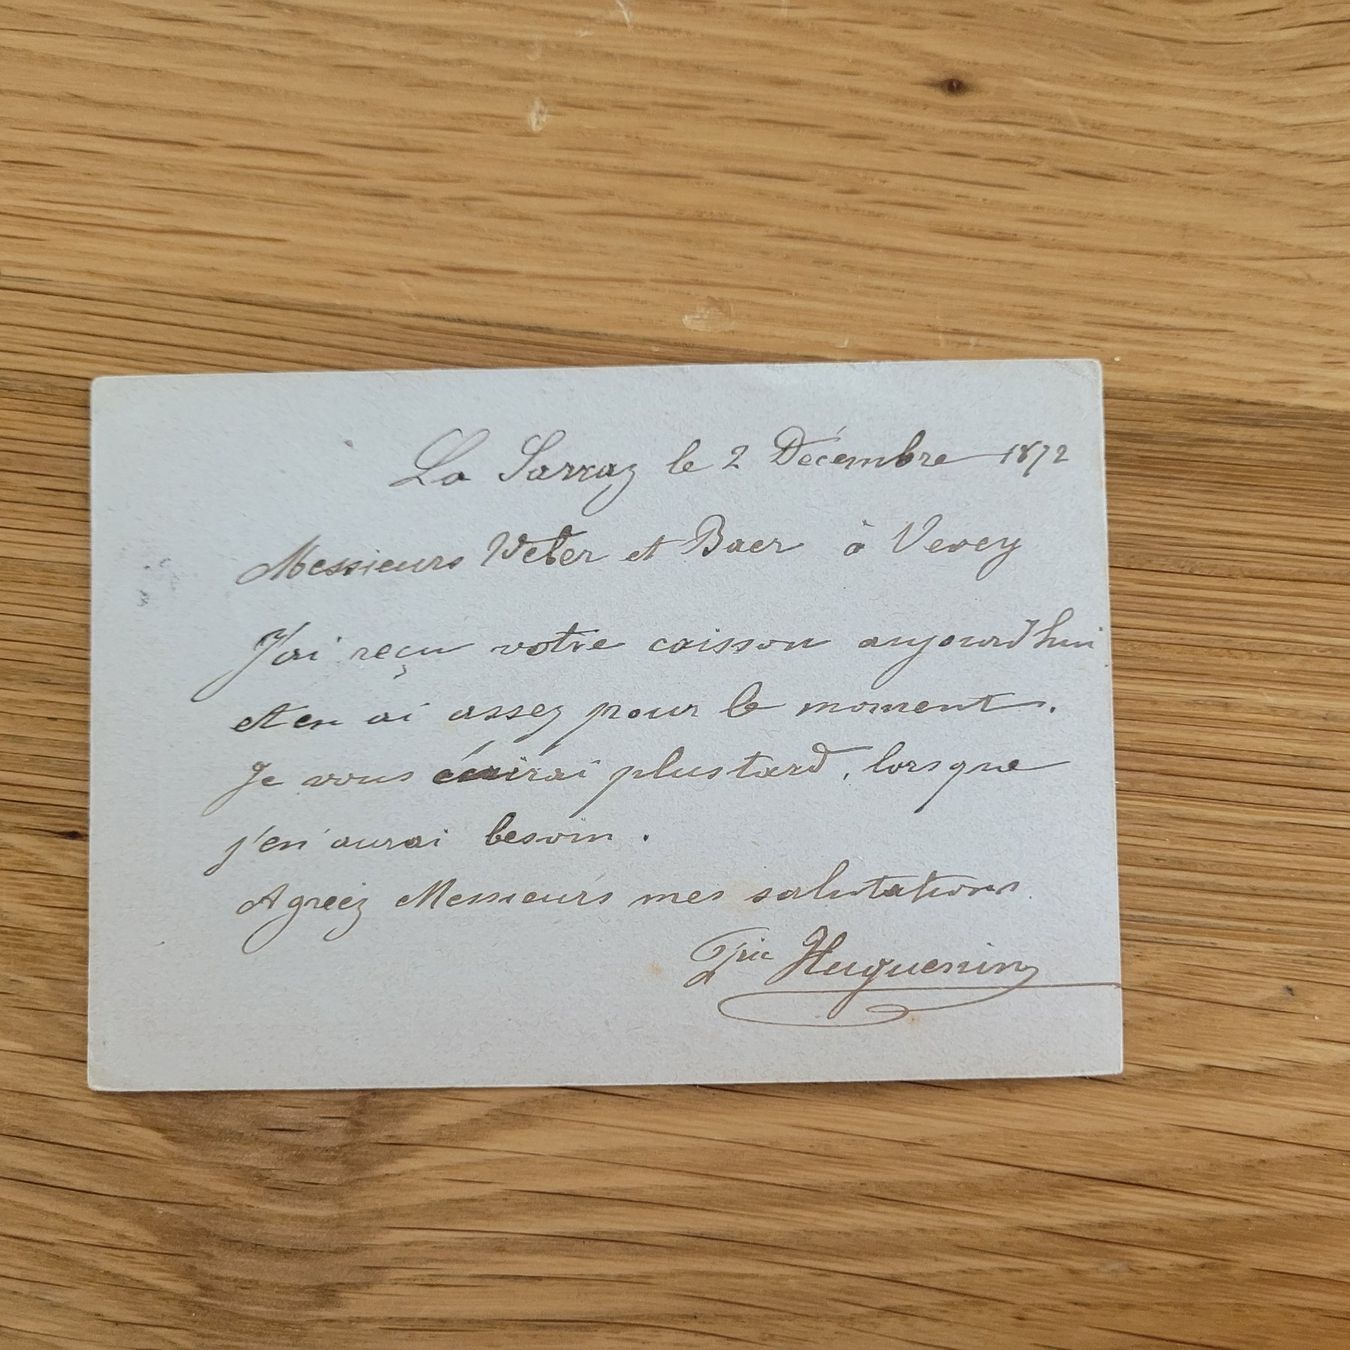 La Sarraz le 2 Décembre 1872
Messieurs Weber et Baer à Vevey
J'ai reçu votre caisson aujourd'hui
et en ai assez pour le moment.
Je vous écrirai plus tard, lorsque
j'en aurai besoin.
Agréez Messieurs mes salutations
Huguenin